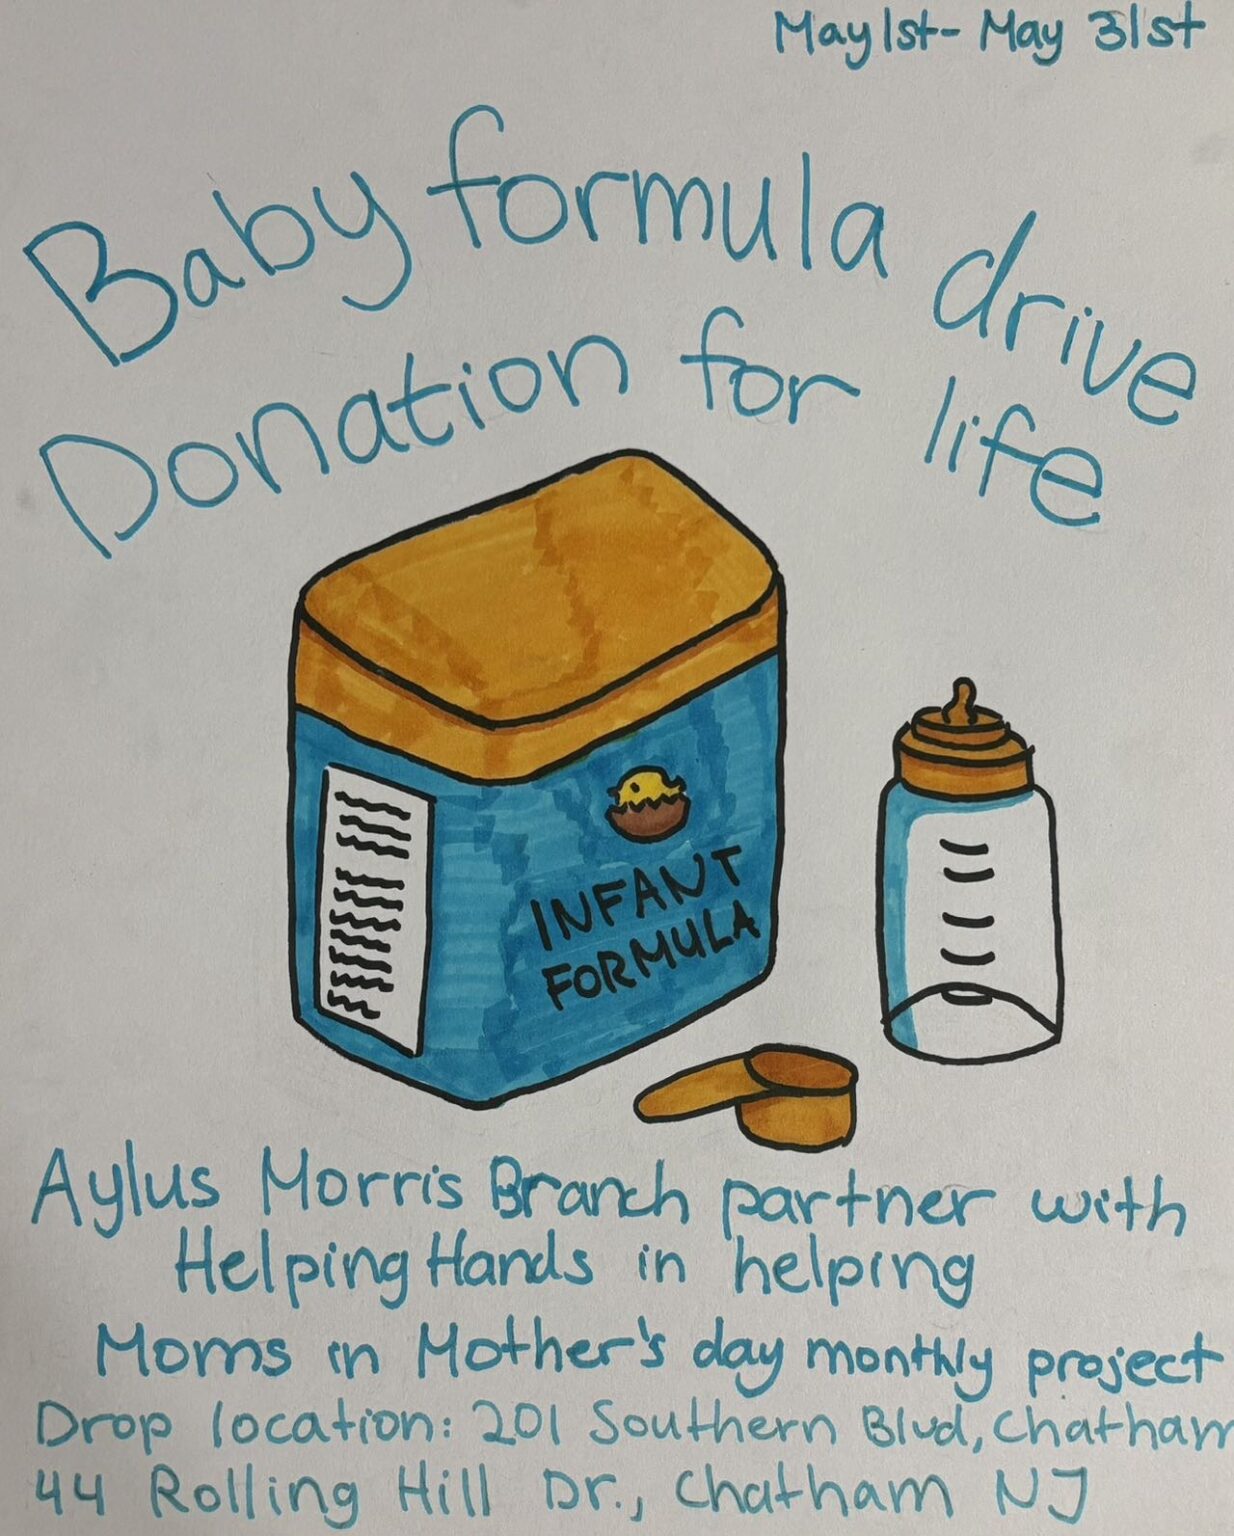 May 1st - May 31st
Baby formula drive
Donation for life
INFANT
FORMULA
Aylus Morris Branch partner with
Helping Hands in helping
Moms in Mother's day monthly project
Drop location: 201 Southern Blvd, Chatham
44 Rolling Hill Dr., Chatham NJ